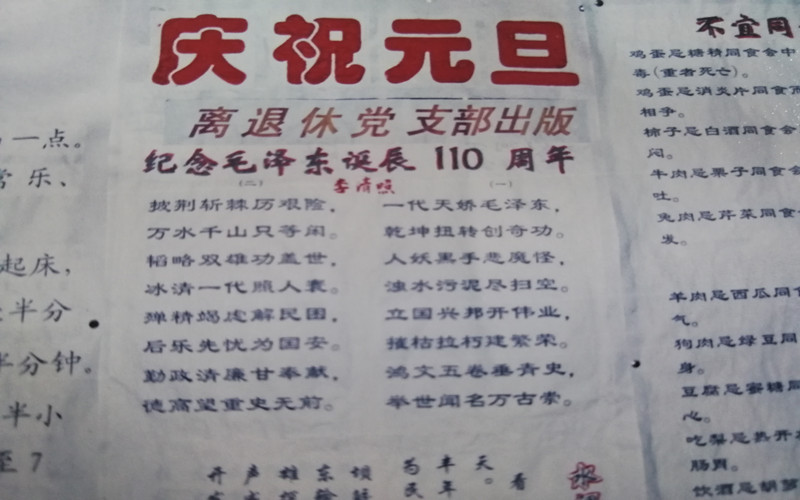 庆祝元旦
离退休党支部出版
纪念毛泽东诞辰110周年
李清照
(一)
一代天娇毛泽东,
乾坤扭转创奇功。
人妖黑手悲魔怪,
浊水污泥尽扫空。
立国兴邦开伟业,
摧枯拉朽建繁荣。
鸿文五卷垂青史,
举世闻名万古崇。
(二)
披荆斩棘历艰险,
万水千山只等闲。
韬略双雄功盖世,
冰清一代照人寰。
殚精竭虑解民困,
后乐先忧为国安。
勤政清廉甘奉献,
德高望重史无前。
一点。
常乐、
起床,
半分
半分钟。
半小
至7
不宜同
鸡蛋忌糖精同食会中
毒(重者死亡)。
鸡蛋忌消炎片同食
相争。
柿子忌白酒同食会
闷。
牛肉忌栗子同食会
吐。
兔肉忌芹菜同食
发。
羊肉忌西瓜同
气。
狗肉忌绿豆同
身。
豆腐忌蜜糖同
心。
吃梨忌热开
肠胃。
饮酒忌胡萝
看
天。
丰年
为民
坝
东
雄
声
开